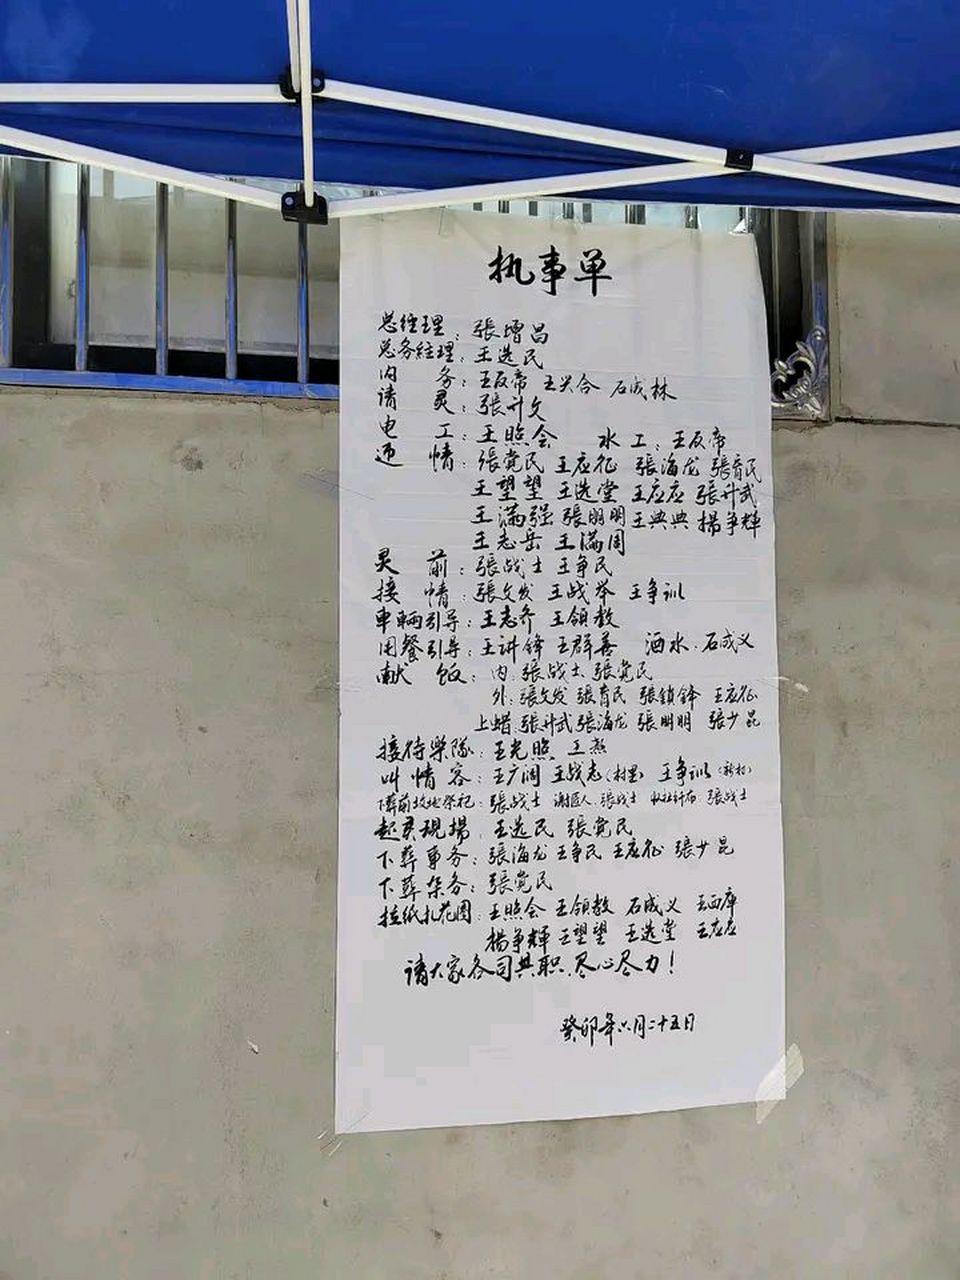 执事单
总经理：張增昌
总务経理：王选民
内务：王反帝 王兴合 石成林
请灵：張升文
电工：王照会 水工：王反帝
迊情：張党民 王应征 張海龙 張育民
王望望 王选堂 王应应 張升武
王满强 張明明 王典典 楊争輝
王志岳 王满周
灵前：張战士 王争民
接情：張文发 王战举 王争训
車輛引导：王志乔 王领教
用餐引导：王讲锋 王群善 酒水：石成义
献饭：内：張战士 張党民
外：張文发 張育民 張鎖鋒 王应征
上蜡：張升武 張海龙 張明明 張少昆
接待樂隊：王光照 王燕
叫情客：王广阔 王战志（村里） 王争训（新村）
下葬前坟地祭祀：張战士 謝匠人：張战士 張战士
起灵现場：王选民 張党民
下葬事务：張海龙 王争民 王应征 張少昆
下葬杂务：張党民
拉纸扎花圈：王照会 王领教 石成义 王西库
楊争輝 王望望 王选堂 王应应
请大家各司其职，尽心尽力！
癸卯年六月二十五日